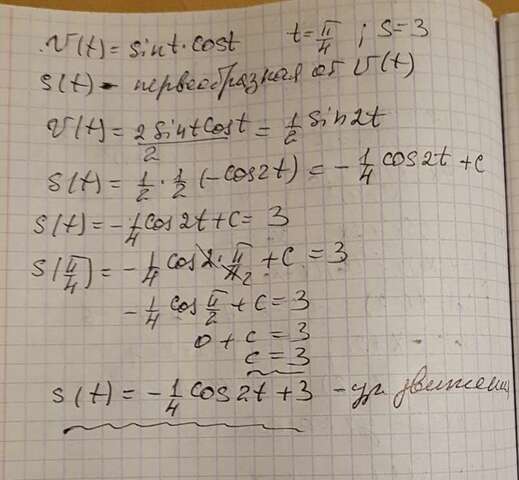 v(t) = sint·cost    t = π/4 ; s = 3
s(t) - первообразная от v(t)
v(t) = 2sintcost/2 = 1/2 sin2t
s(t) = 1/2 · 1/2 (-cos2t) = -1/4 cos2t + c
s(t) = -1/4 cos2t + c = 3
s(π/4) = -1/4 cos2·π/4₂ + c = 3
-1/4 cos π/2 + c = 3
0 + c = 3
c = 3
s(t) = -1/4 cos2t + 3 - ур. движения